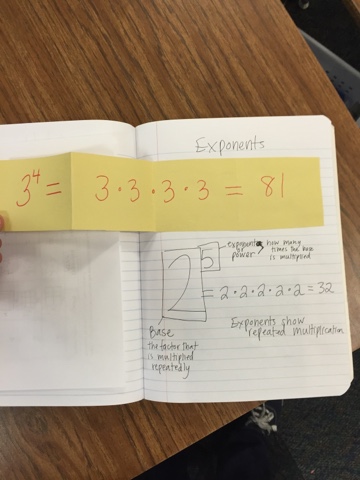 Exponents
3⁴ = 3 · 3 · 3 · 3 = 81
exponent or power → how many times the base is multiplied
2⁵ = 2 · 2 · 2 · 2 · 2 = 32
Base
The factor that
is multiplied
repeatedly
Exponents show
repeated multiplication